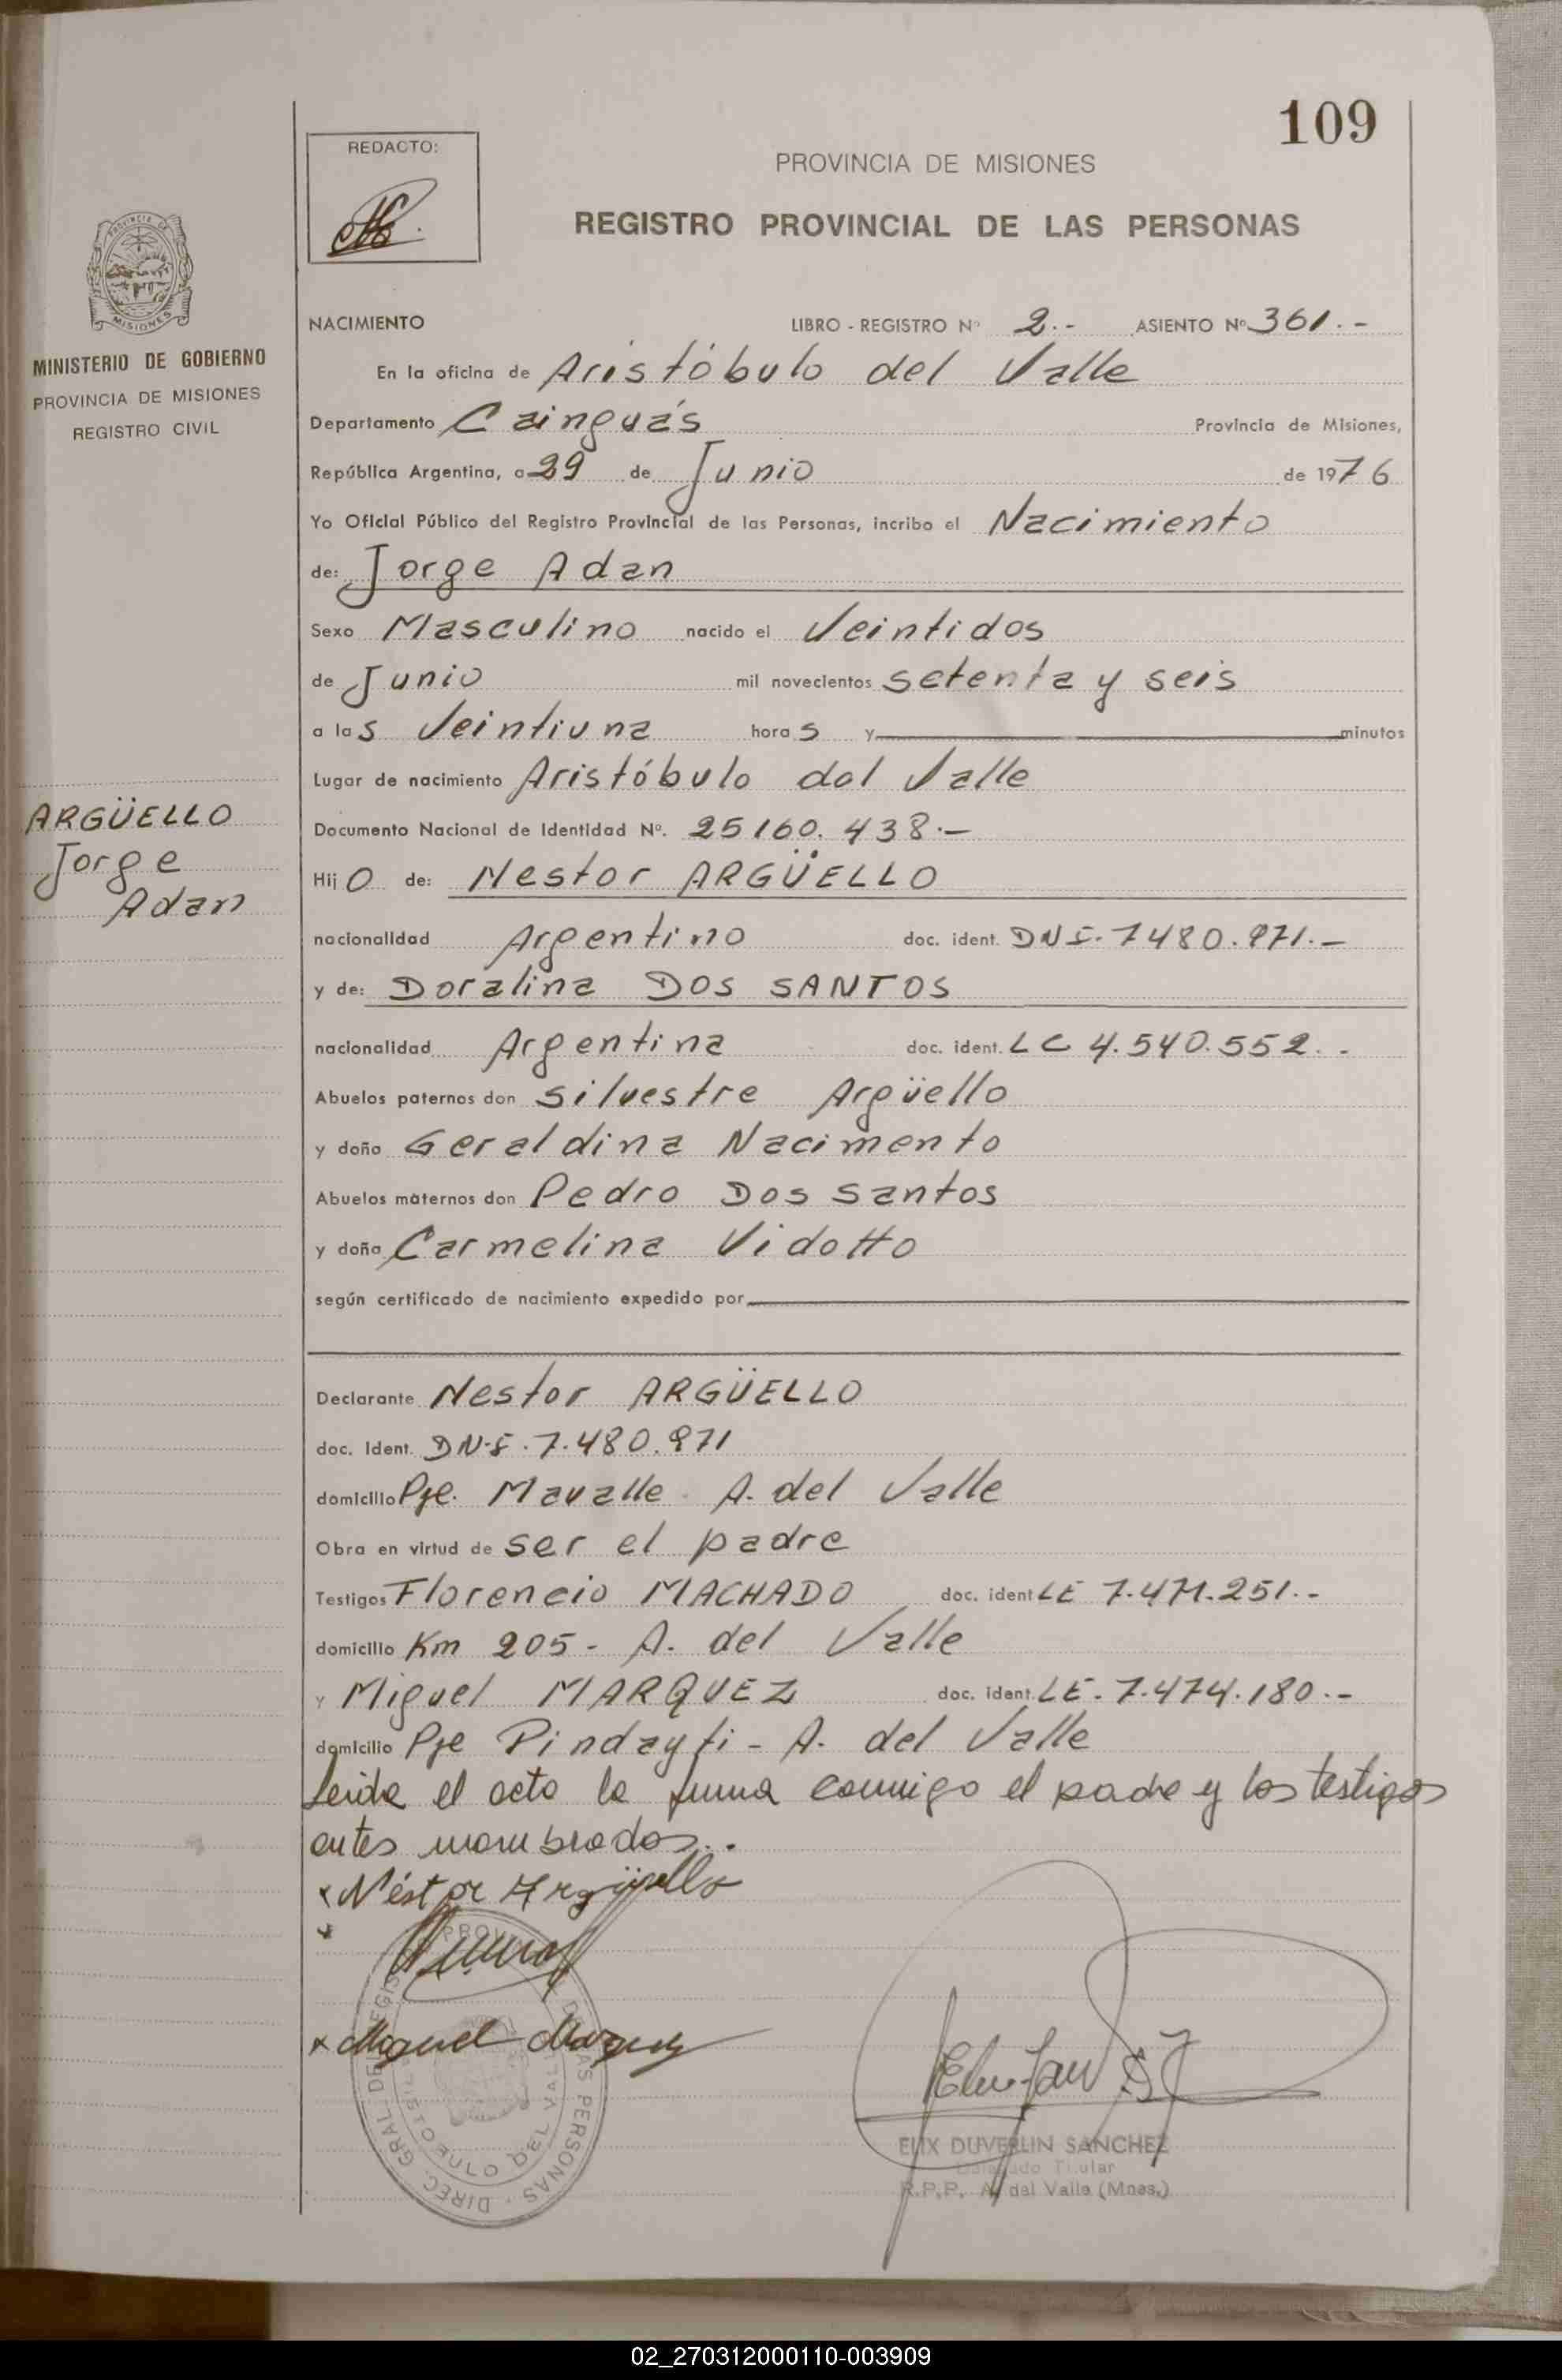 109
REDACTO:
PROVINCIA DE MISIONES
REGISTRO PROVINCIAL DE LAS PERSONAS
MISIONES
MINISTERIO DE GOBIERNO
PROVINCIA DE MISIONES
REGISTRO CIVIL
NACIMIENTO LIBRO - REGISTRO Nº 2.- ASIENTO Nº 361.-
En la oficina de Aristóbulo del Valle
Departamento Cainguás Provincia de Misiones,
República Argentina, a 29 de Junio de 1976
Yo Oficial Público del Registro Provincial de las Personas, incribo el Nacimiento
de: Jorge Adan
Sexo Masculino nacido el Veintidos
de Junio mil novecientos setenta y seis
a las Veintiuna horas y minutos
Lugar de nacimiento Aristóbulo dol Valle
Documento Nacional de Identidad Nº. 25160.438.-
ARGÜELLO
Jorge
Adan
Hijo de: Nestor ARGÜELLO
nacionalidad Argentino doc. ident. DNI. 7480.971.-
y de: Doralina DOS SANTOS
nacionalidad Argentina doc. ident. LC 4.540.552.-
Abuelos paternos don Silvestre Argüello
y doña Geraldina Nacimento
Abuelos maternos don Pedro Dos Santos
y doña Carmelina Vidotto
según certificado de nacimiento expedido por
Declarante Nestor ARGÜELLO
doc. Ident. DN.I. 7.480.971
domicilio Pje. Mavalle - A. del Valle
Obra en virtud de ser el padre
Testigos Florencio MACHADO doc. ident LE 7.471.251.-
domicilio Km 205 - A. del Valle
y Miguel MARQUEZ doc. ident. LE. 7.474.180.-
domicilio Pje Pindayti - A. del Valle
Leida el acta la firma conmigo el padre y los testigos
antes nombrados..
x Néstor Argüello
x Miguel Marquez
DIREC. GRAL. DE REGIS PROV DE LAS PERSONAS
ARISTOBULO DEL VALLE
ELIX DUVERLIN SANCHEZ
Delegado Titular
R.P.P. A. del Valle (Mnes.)
02_270312000110-003909